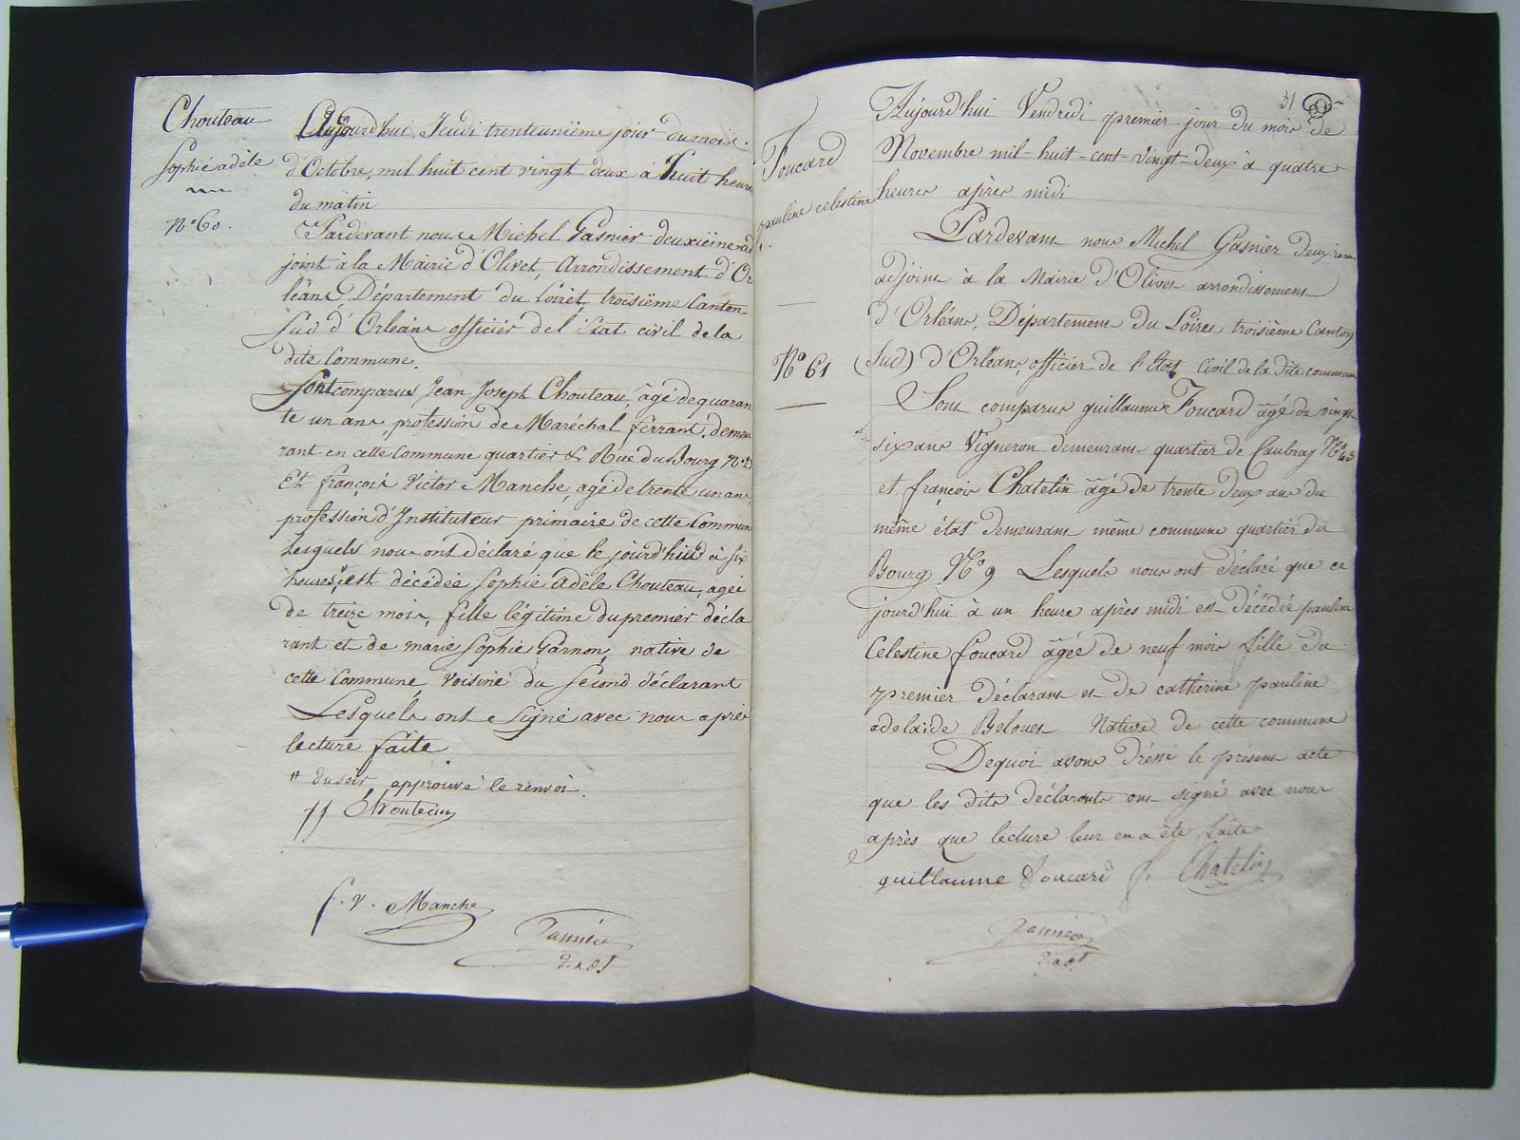 Chouteau
Sophie adèle
N.º 60.
Aujourd'hui Jeudi trenteunième jour du mois
d'Octobre, mil huit cent vingt deux à huit heures
du matin
Pardevant nous Michel Gasnier deuxième ad
joint à la Mairie d'Olivet, Arrondissement d'Or
léans, Département du Loiret, troisième Canton
Sud d'Orléans officier de l'Etat civil de la
dite Commune.
Sont comparus Jean Joseph Chouteau, âgé de quaran
te un ans, profession de Maréchal ferrant, demeu
rant en cette Commune quartier & Rue du Bourg N.º
Et françois Victor Manche, agé de trente un ans,
profession d'Instituteur primaire de cette Commune
Lesquels nous ont déclaré que le jourd'hui à six
heures est décédée Sophie Adèle Chouteau, agée
de treize mois, fille légitime du premier décla
rant et de marie Sophie Garnon, native de
cette Commune, voisine du second déclarant
Lesquels ont signé avec nous après
lecture faite
# du soir approuvé le renvoi.
JJ Chouteau
f. v. Manche
Gasnier
31
Foucard
pauline celestine
Nº 61
Aujourd'hui Vendredi premier jour du mois de
Novembre mil-huit-cent-vingt-deux à quatre
heures après midi
Pardevant nous Michel Gasnier deuxieme
adjoint à la Mairie d'Olivet arrondissement
d'Orléans, Département du Loiret troisième Canton
(Sud) d'Orléans officier de l'Etat Civil de la dite commune
Sont comparus guillaume Foucard âgé de vingt
six ans Vigneron demeurant quartier de Caubray Nº 43
et françois Chatelin âgé de trente deux ans du
même état demeurant même commune quartier du
Bourg Nº 9 Lesquels nous ont déclaré que ce
jourd'hui à un heure après midi est décédée pauline
Celestine foucard agée de neuf mois fille du
premier déclarant et de catherine pauline
adelaide Belouet Native de cette commune
Dequoi avons dressé le présent acte
que les dits déclarants ont signé avec nous
après que lecture leur en a été faite
guillaume foucard f. Chatelin
Gasnier